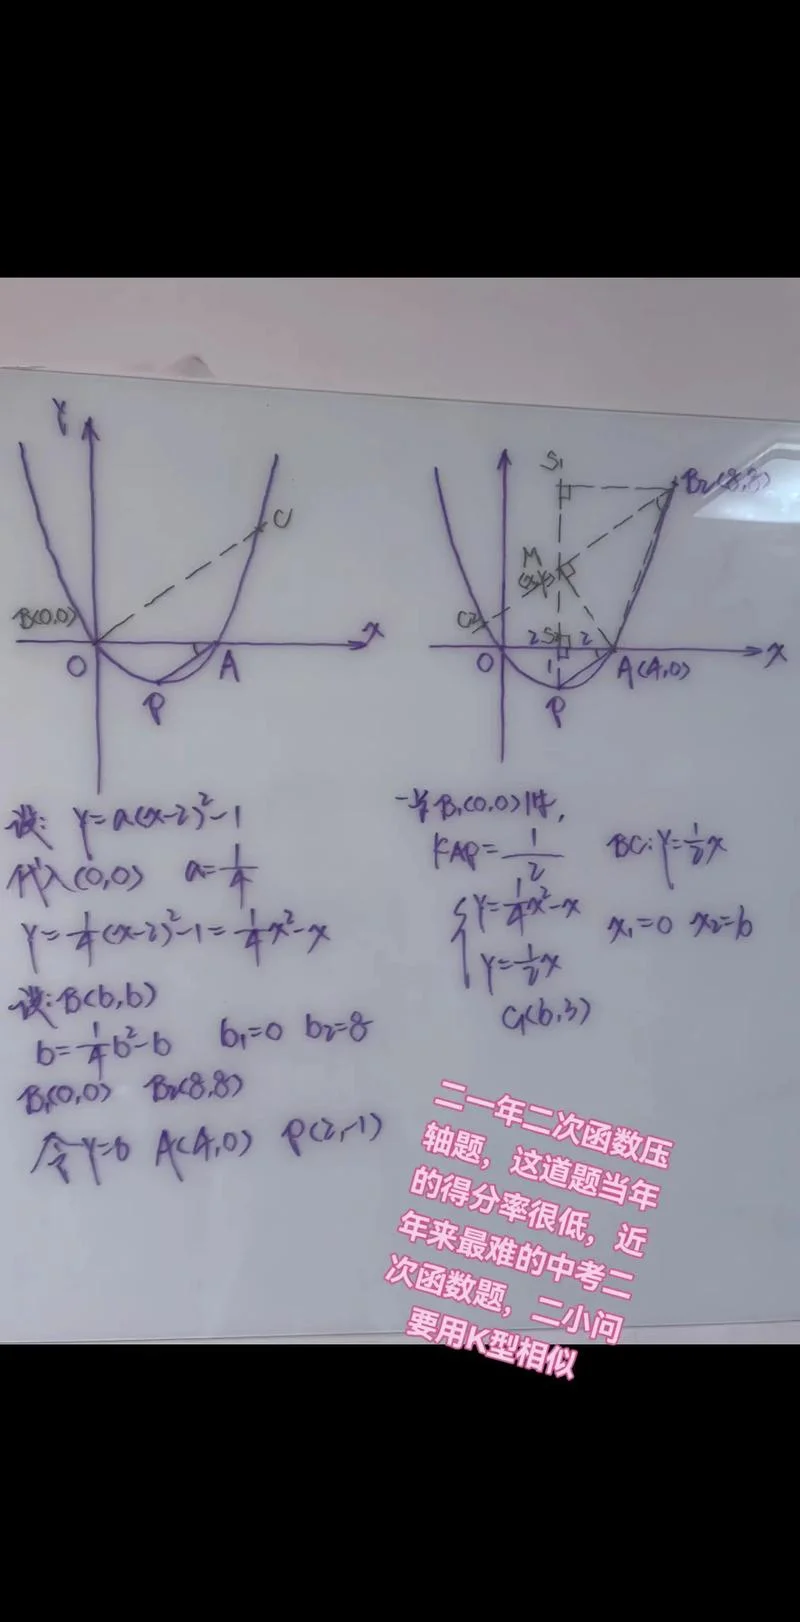 Y
C
B(0,0)
x
O
A
P
S₁
B₂(8,8)
M
C₂
S₂
2
2
1
x
O
A(4,0)
P
设: y=a(x-2)²-1
代入(0,0) a=1/4
y=1/4(x-2)²-1=1/4x²-x
设:B(b,b)
b=1/4b²-b b₁=0 b₂=8
B₁(0,0) B₂(8,8)
令y=0 A(4,0) P(2,-1)
一当B₁(0,0)时,
KAP=1/2 BC:y=1/2x
{y=1/4x²-x
y=1/2x
x₁=0 x₂=6
C₁(6,3)
二一年二次函数压
轴题，这道题当年
的得分率很低，近
年来最难的中考二
次函数题，二小问
要用K型相似